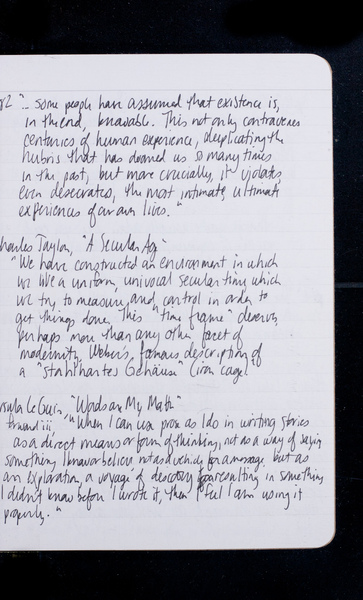 82 "... some people have assumed that existence is,
in the end, knowable. This not only contravenes
centuries of human experience, duplicating the
hubris that has doomed us so many times
in the past, but more crucially, it violates,
even desecrates, the most intimate, ultimate
experiences of our own lives."
harles Taylor, "A Secular Age"
"We have constructed an environment in which
we live a uniform, univocal secular time, which
we try to measure and control in order to
get things done. This "time frame" deserves,
perhaps more than any other facet of
modernity, Weber's famous description of
a "stahlhartes Gehäuse" (iron cage).
rsula Le Guin, "Words are My Matter"
"When I can use prose as I do in writing stories
as a direct means or form of thinking, not as a way of saying
something I know or believe, not as a vehicle for a message, but as
an exploration, a voyage of discovery resulting in something
I didn't know before I wrote it, then I feel I am using it
properly."